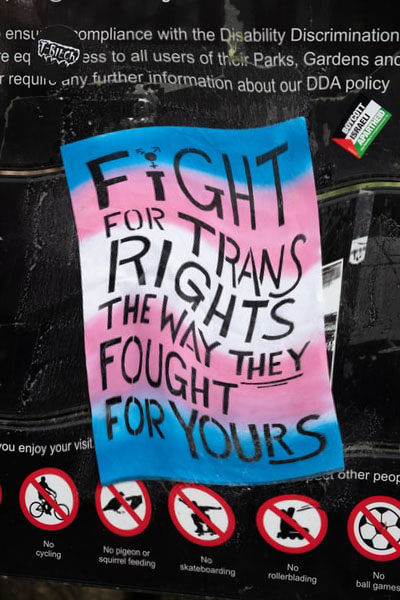 ensu compliance with the Disability Discrimination
re eq ess to all users of their Parks, Gardens and
r require any further information about our DDA policy
BOYCOTT
ISRAELI
APARTHEID
FIGHT
FOR TRANS
RIGHTS
THE WAY THEY
FOUGHT
FOR YOURS
you enjoy your visit
ect other peop
No
cycling
No pigeon or
squirrel feeding
No
skateboarding
No
rollerblading
No
ball games